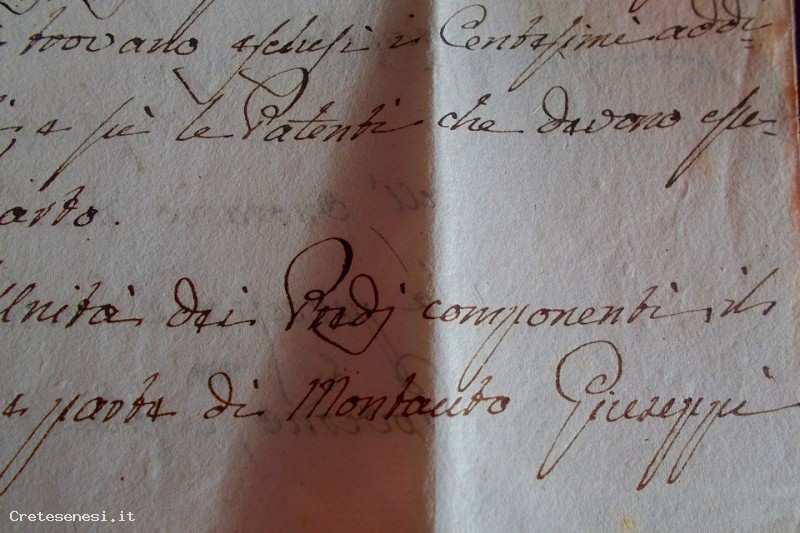 trovano esclusi i Centesimi addi-
e più le Patenti che devono esse-
arto.
Unità dei Podj componenti il
e parte di Montauto Giuseppi
Cretesenesi.it